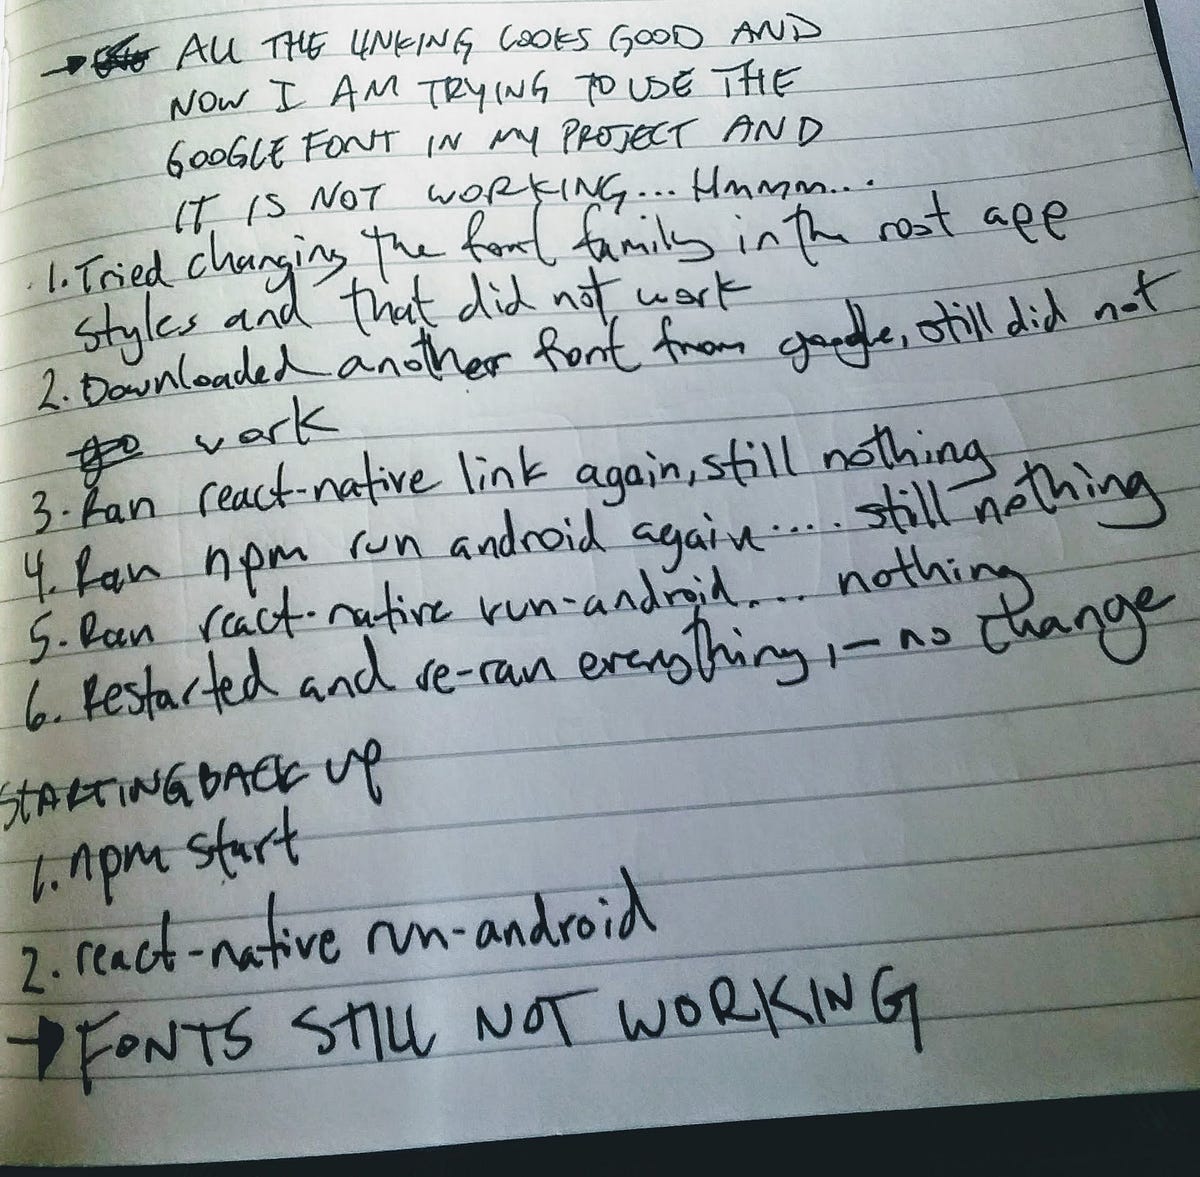 → ALL THE LINKING LOOKS GOOD AND
NOW I AM TRYING TO USE THE
GOOGLE FONT IN MY PROJECT AND
IT IS NOT WORKING... Hmmm...
1. Tried changing the font family in the root app
styles and that did not work
2. Downloaded another font from google, still did not
work
3. Ran react-native link again, still nothing
4. Ran npm run android again..... still nothing
5. Ran react-native run-android... nothing
6. Restarted and re-ran everything, - no change
STARTING BACK UP
1. npm start
2. react-native run-android
→ FONTS STILL NOT WORKING